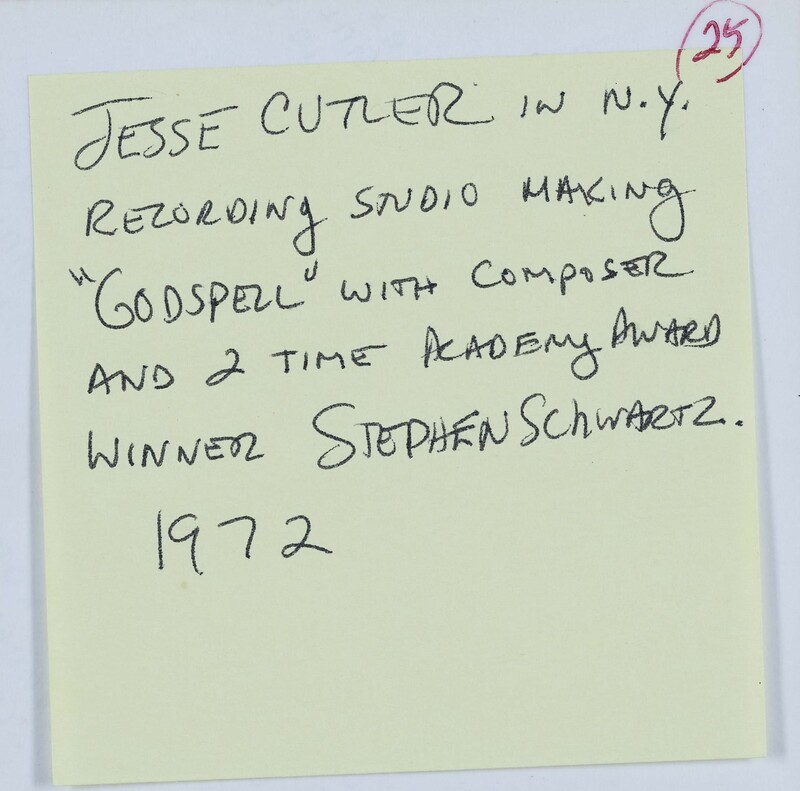 25
JESSE CUTLER IN N.Y.
RECORDING STUDIO MAKING
"GODSPELL" WITH COMPOSER
AND 2 TIME ACADEMY AWARD
WINNER STEPHEN SCHWARTZ.
1972